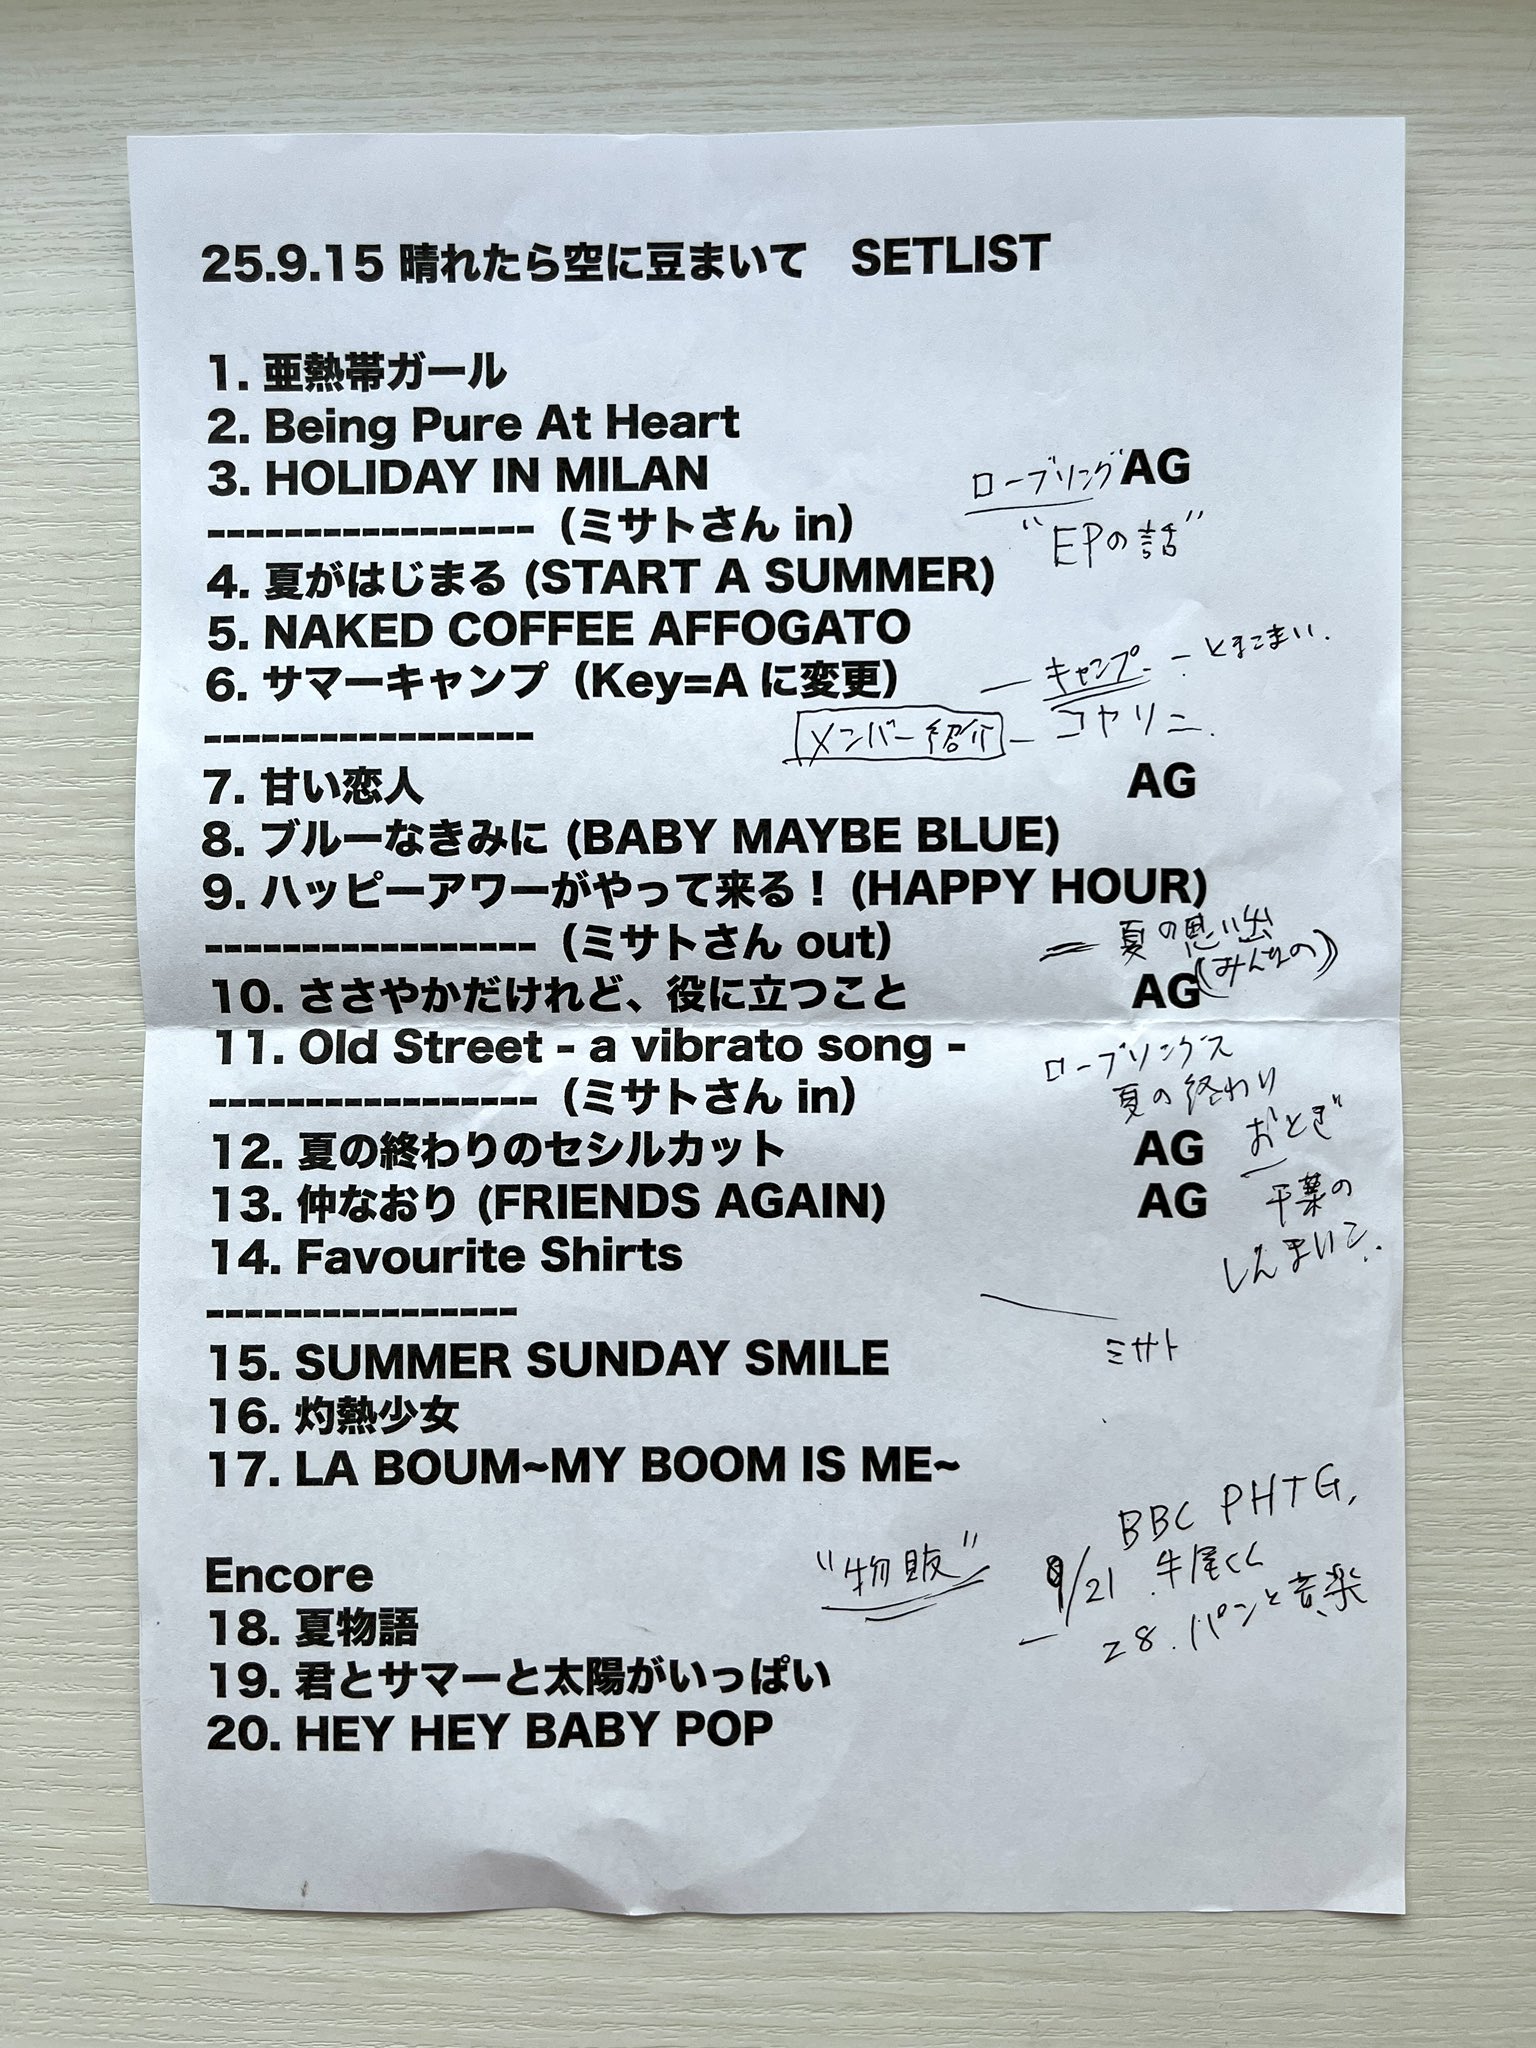 25.9.15 晴れたら空に豆まいて SETLIST
1. 亜熱帯ガール
2. Being Pure At Heart
3. HOLIDAY IN MILAN ローブリング AG
-----------------（ミサトさん in）
“EPの話”
4. 夏がはじまる (START A SUMMER)
5. NAKED COFFEE AFFOGATO
6. サマーキャンプ（Key=A に変更） — キャンプ - とまこまい.
----------------- メンバー紹介 - コヤリニ.
7. 甘い恋人 AG
8. ブルーなきみに (BABY MAYBE BLUE)
9. ハッピーアワーがやって来る！(HAPPY HOUR)
-----------------（ミサトさん out） 夏の思い出
(みんなの)
10. ささやかだけれど、役に立つこと AG
11. Old Street - a vibrato song - ローブリングス
-----------------（ミサトさん in） 夏の終わり
12. 夏の終わりのセシルカット AG おとぎ
13. 仲なおり (FRIENDS AGAIN) AG 千葉の
14. Favourite Shirts しんまいこ..
----------------
15. SUMMER SUNDAY SMILE ミサト
16. 灼熱少女
17. LA BOUM~MY BOOM IS ME~
BBC PHTG,
Encore “物販” 9/21 . 牛尾くん
18. 夏物語 28. パンと音楽
19. 君とサマーと太陽がいっぱい
20. HEY HEY BABY POP